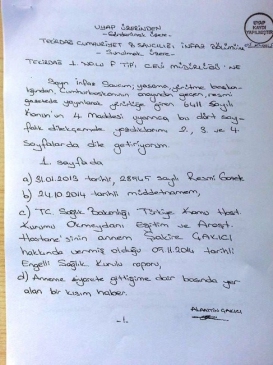 UYAP ÜZERİNDEN
- Gönderilmek Üzere -
TEKİRDAĞ CUMHURİYET B. SAVCILIĞI İNFAZ BÖLÜMÜNE
- Sunulmak Üzere -
TEKİRDAĞ 1 NOLU F TİPİ CEZAEVİ MÜDÜRLÜĞÜ'NE
Sayın infaz Savcım; yasama, yürütme, başba-
kanlığından, Cumhurbaşkanının onayından geçen, resmi
gazetede yayınlanıp yürürlüğe giren 6411 Sayılı
Kanun'un 4 Maddesi uyarınca, bu dört say-
falık dilekçemde yazdıklarımı 2., 3. ve 4.
Sayfalarda dile getiriyorum.
1. sayfada
a) 31.01.2013 tarihli, 28545 sayılı Resmi Gazete
b) 24.10.2014 tarihli müddetnamem,
c) T.C. Sağlık Bakanlığı Türkiye Kamu Hast.
Kurumu Okmeydanı Eğitim ve Araşt.
Hastane'sinin annem Şakire ÇAKICI
hakkında vermiş olduğu 05.11.2014 tarihli
Engelli Sağlık Kurulu raporu,
d) Anneme ziyarete gittiğime dair basında yer
alan bir kısım haber.
Alaattin ÇAKICI
- 1 -